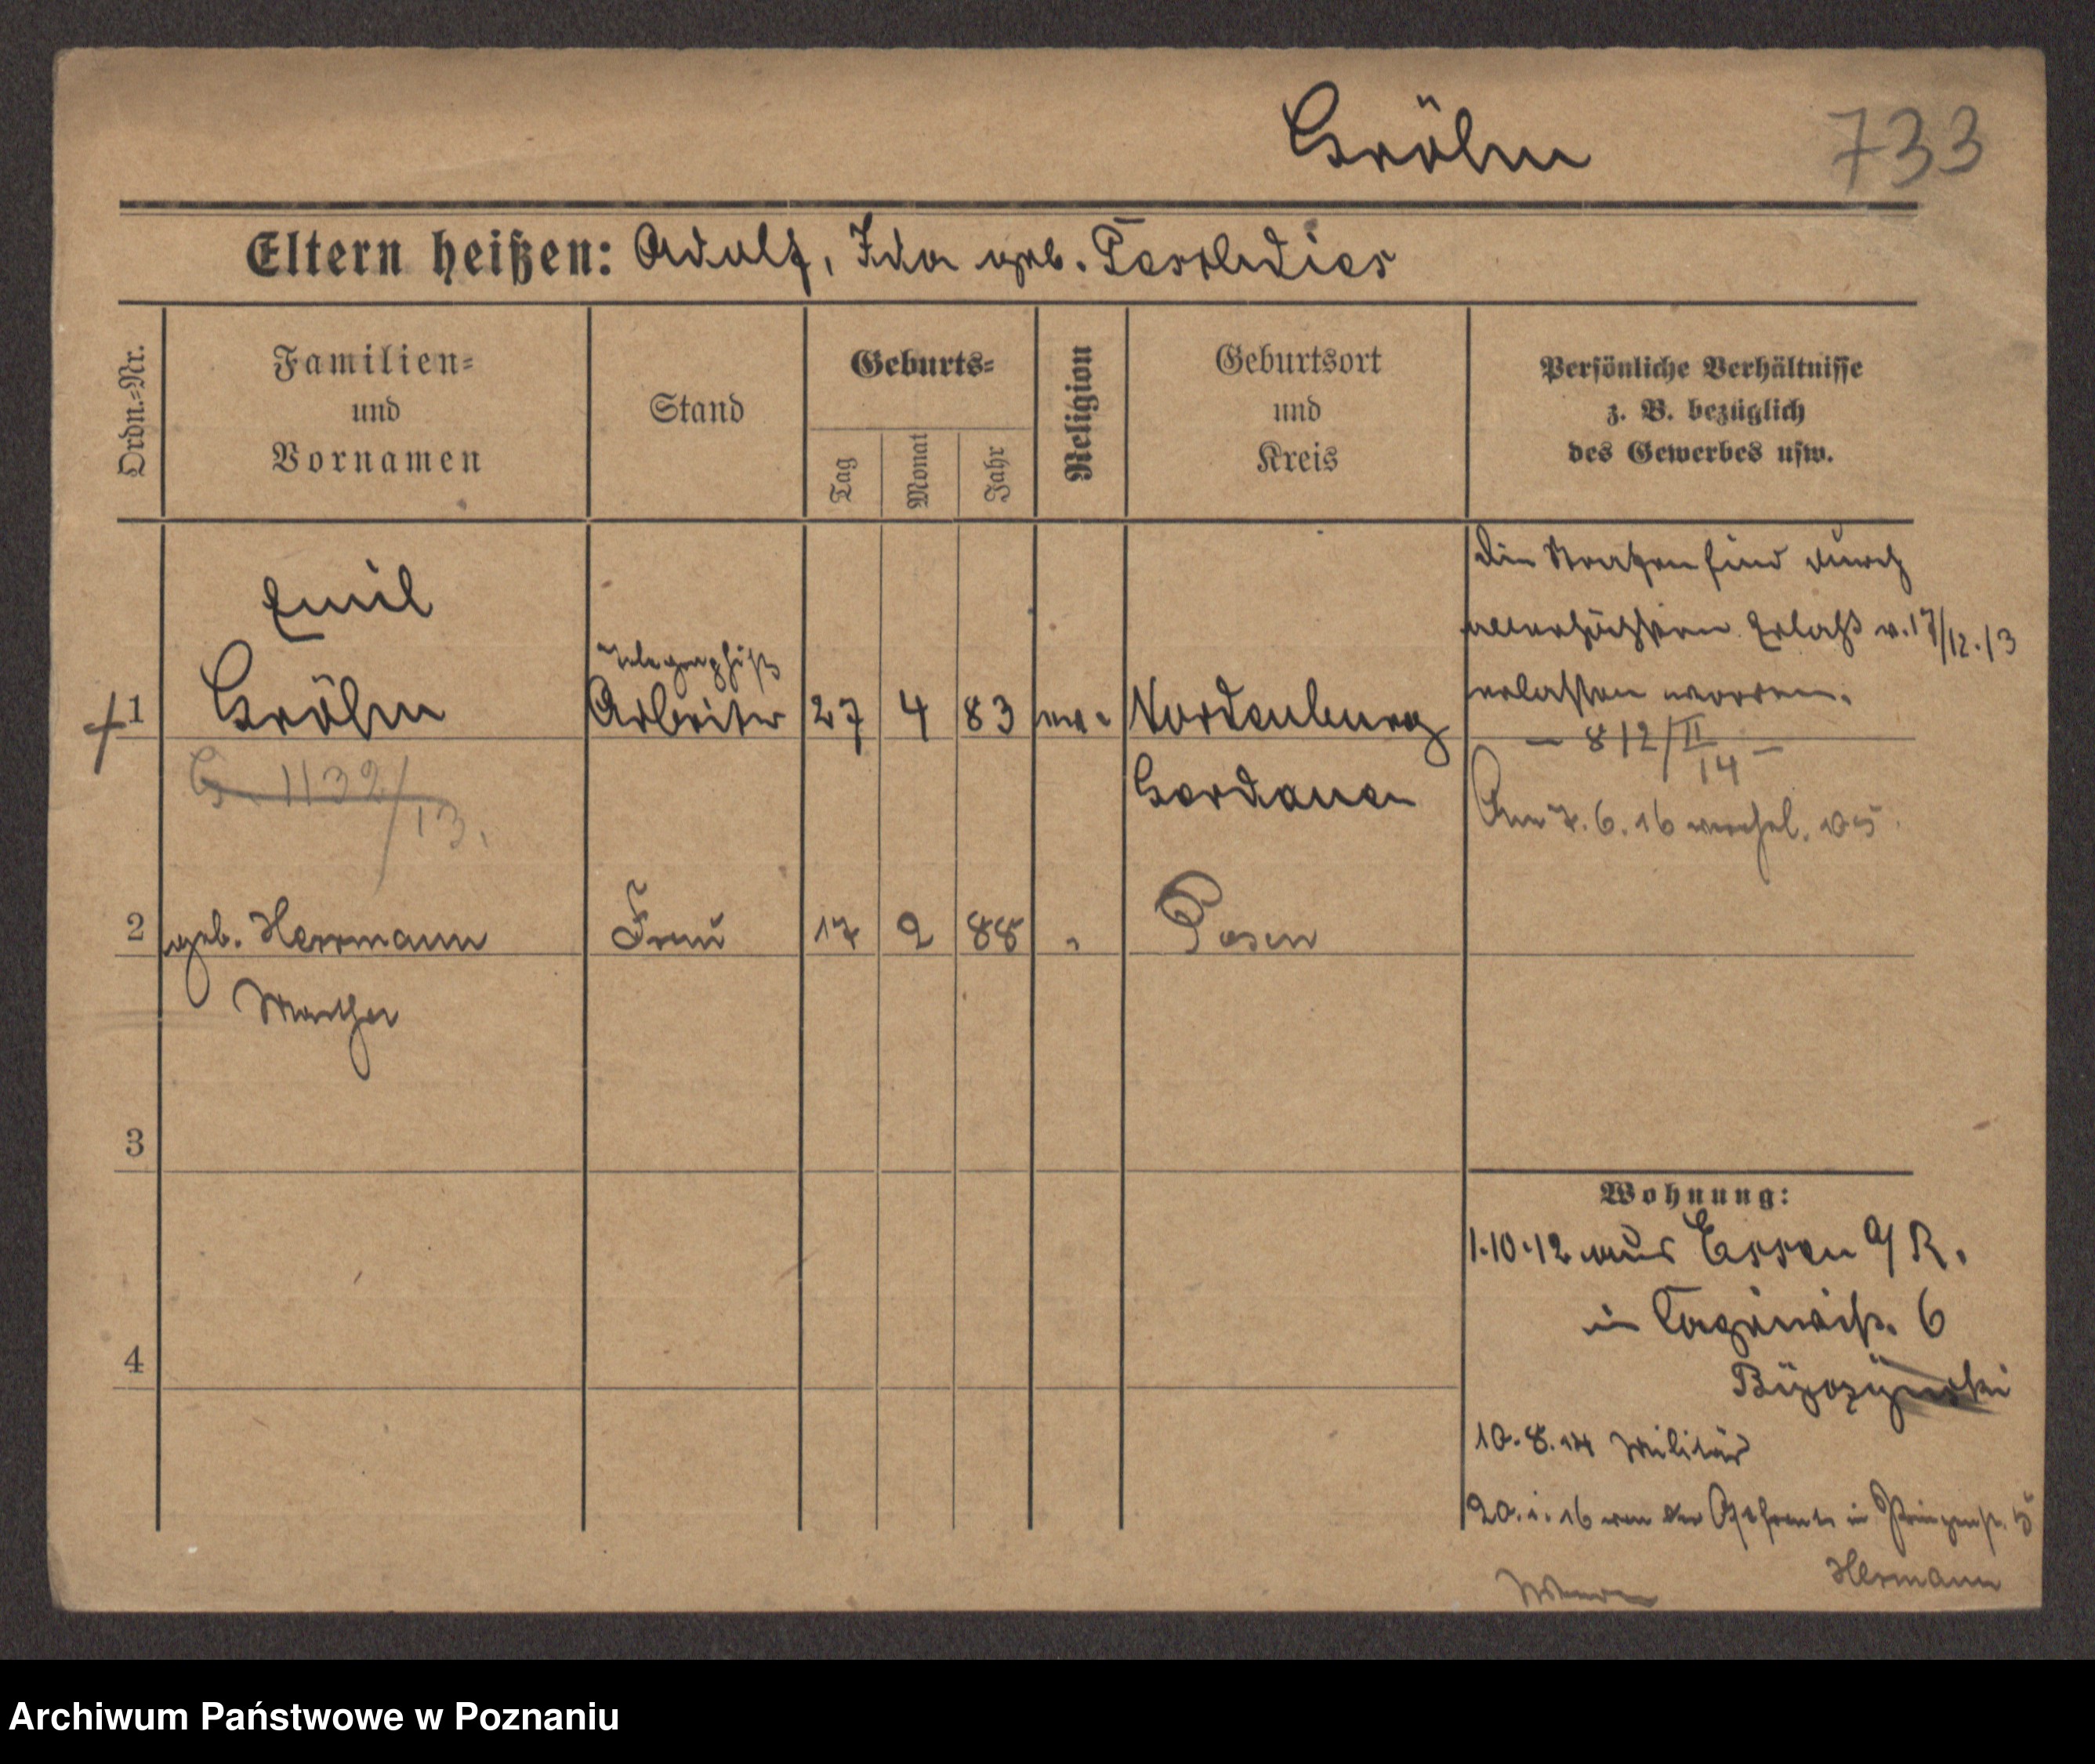 Gröhn
733
Eltern heißen: Adolf, Ida geb.
Ordn.-Nr.
Familien-
und
Vornamen
Stand
Geburts-
Tag
Monat
Jahr
Religion
Geburtsort
und
Kreis
Persönliche Verhältnisse
z. B. bezüglich
des Gewerbes usw.
Emil
Telegraphist
1 Gröhn Arbeiter 27 4 83 ev. Nordenburg
Gerdauen
G. 1132/13.
Die Strafen sind durch
allerhöchsten Erlaß v. 17/12.13
erlassen worden.
– 812/II 14 –
Am 7.6.16
2 geb. Herrmann Frau 17 2 88 " Posen
Martha
3
4
Wohnung:
1.10.12 aus Essen a/R.
in 6
10.8.14 Militär
20.1.16 von der Ostfront in Prinzenstr. 5
Hermann
Archiwum Państwowe w Poznaniu